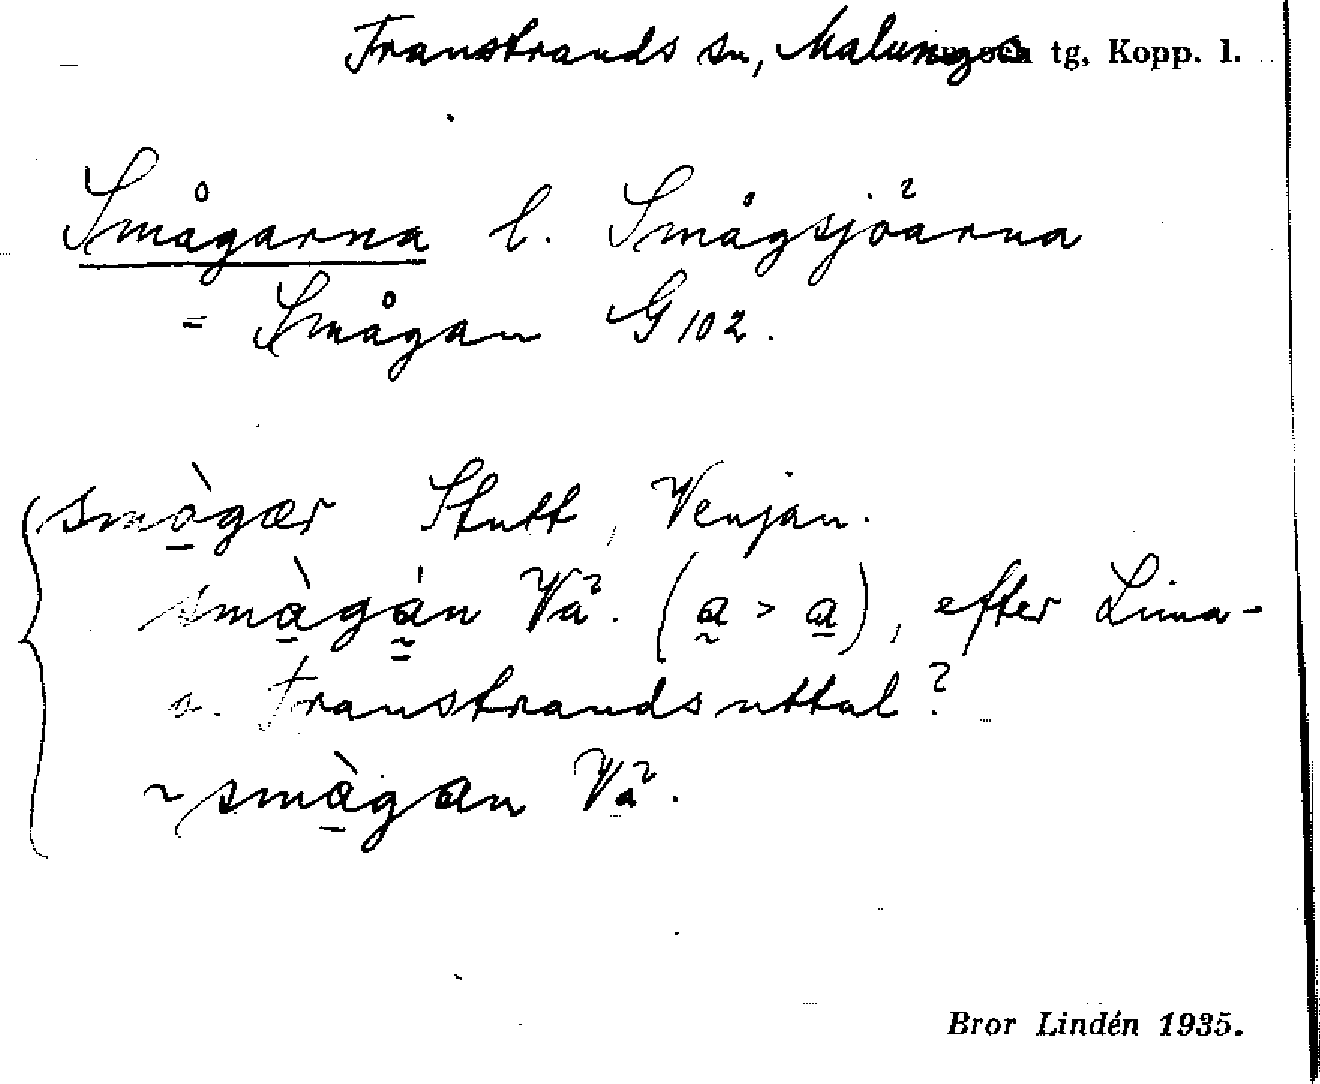 Transtrands sn, Malungs tg, Kopp. l.
Smågarna l. Smågsjöarna
= Smågan G 102.
smò̱gær Stutt, Venjan.
smà̱gán Vå. (a̰ > a̱), efter Lima-
o. Transtrandsuttal?
~ smà̱gan Vå.
Bror Lindén 1935.